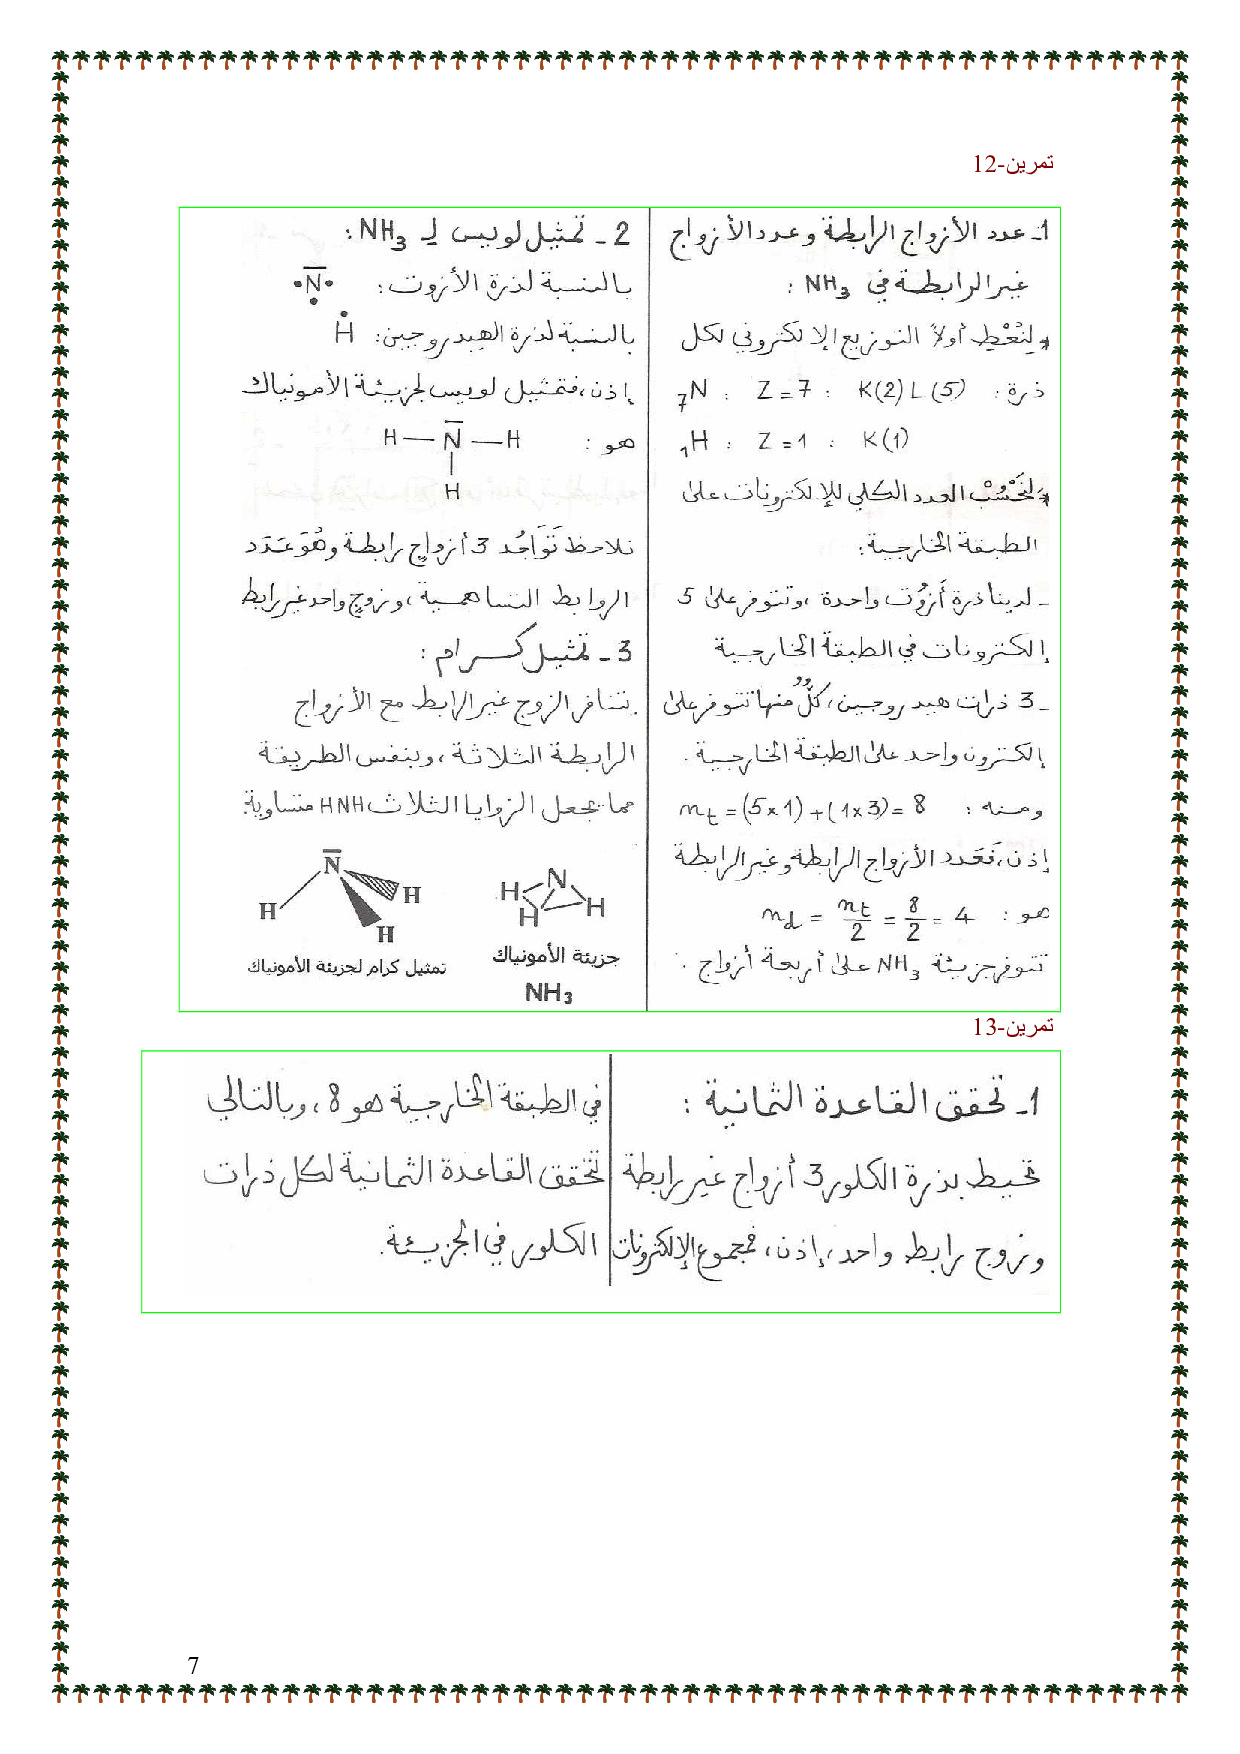 تمرين-12
1- عدد الأزواج الرابطة وعدد الأزواج
غير الرابطة في NH₃ :
* لِنُعْطِ أولاً التوزيع الإلكتروني لكل
ذرة : ₇N : Z = 7 : K(2) L (5)
₁H : Z = 1 : K(1)
* لِنَحْسُبْ العدد الكلي للإلكترونات على
الطبقة الخارجية:
- لدينا ذرة أَزُوت واحدة ،وتتوفر على 5
إلكترونات في الطبقة الخارجية
- 3 ذرات هيدروجين، كلٌّ منها تتوفر على
إلكترون واحد على الطبقة الخارجية .
ومنه : n_t = (5×1) + (1×3) = 8
إذن، فَعَدد الأزواج الرابطة وغير الرابطة
هو : n_d = n_t/2 = 8/2 = 4
تتوفر جزيئة NH₃ على أربعة أزواج .
2 - تمثيل لويس لـ NH₃ :
بالنسبة لذرة الأزوت : •N̅•
•
بالنسبة لذرة الهيدروجين: Ḣ
إذن، فتمثيل لويس لجزيئة الأمونياك
هو : H — N̅ — H
|
H
نلاحظ تَوَاجُد 3 أزواجٍ رابطة وهُوَ عَدَد
الروابط التساهمية ، وزوج واحد غير رابط
3 - تمثيل كرام :
يتنافر الزوج غير الرابط مع الأزواج
الرابطة الثلاثة ، وبنفس الطريقة
مما يجعل الزوايا الثلاث HNH متساوية.
N̅ H H H
تمثيل كرام لجزيئة الأمونياك
N H H H
جزيئة الأمونياك
NH₃
تمرين-13
1- تحقق القاعدة الثمانية :
تحيط بذرة الكلور 3 أزواج غير رابطة
وزوج رابط واحد، إذن، فمجموع الإلكترونات
في الطبقة الخارجية هو 8 ، وبالتالي
تتحقق القاعدة الثمانية لكل ذرات
الكلور في الجزيئة.
7